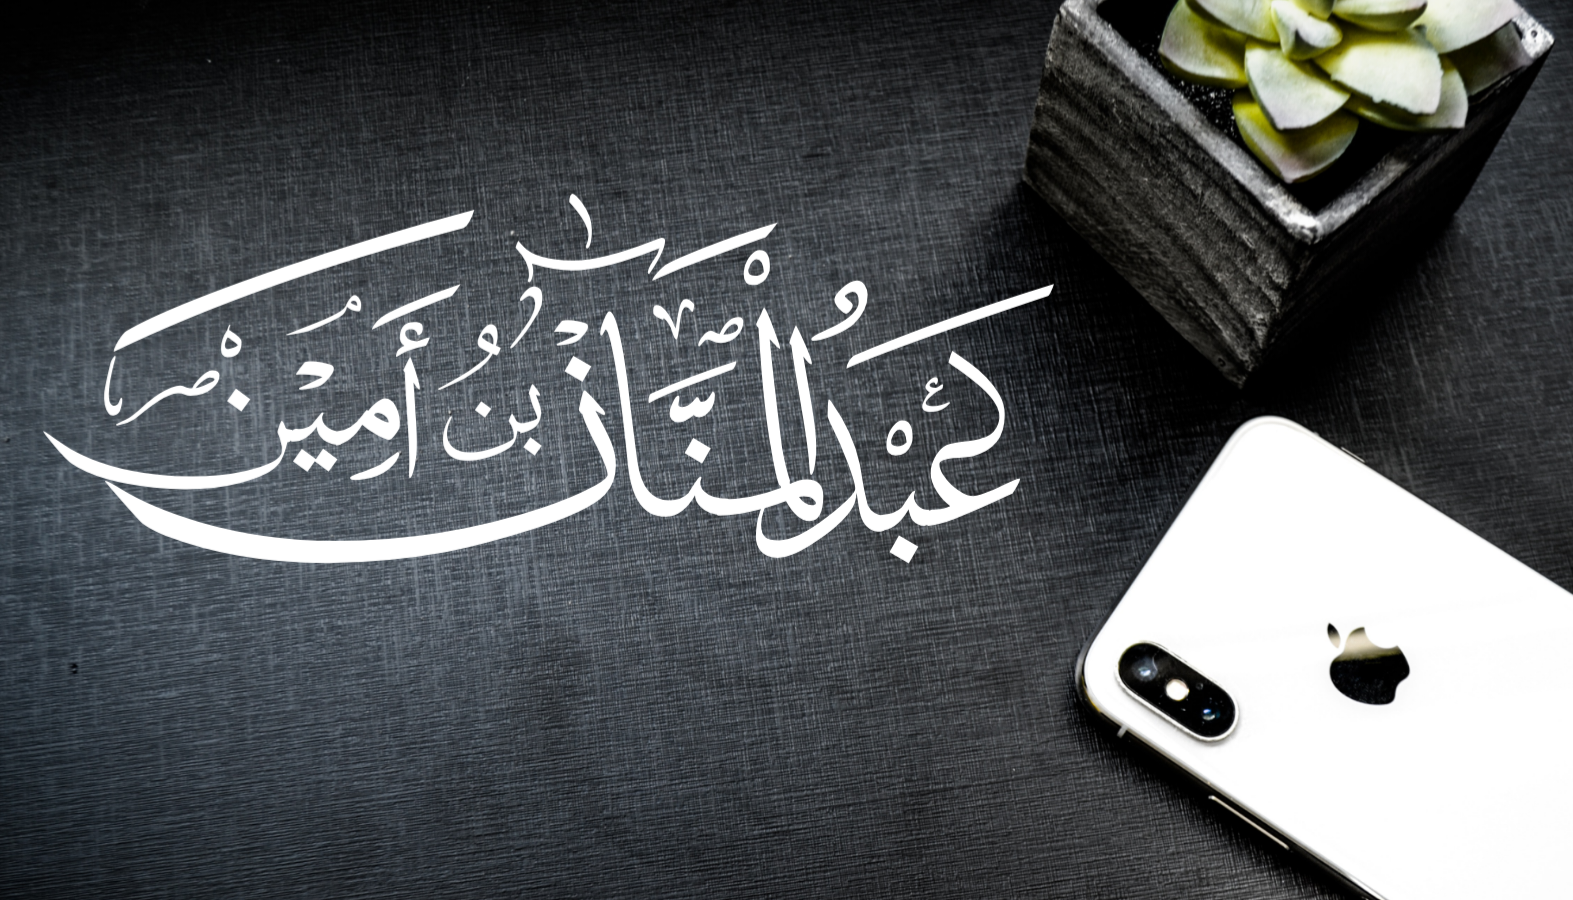 عَبْدُ الْمَنَّان بن أَمِيْن